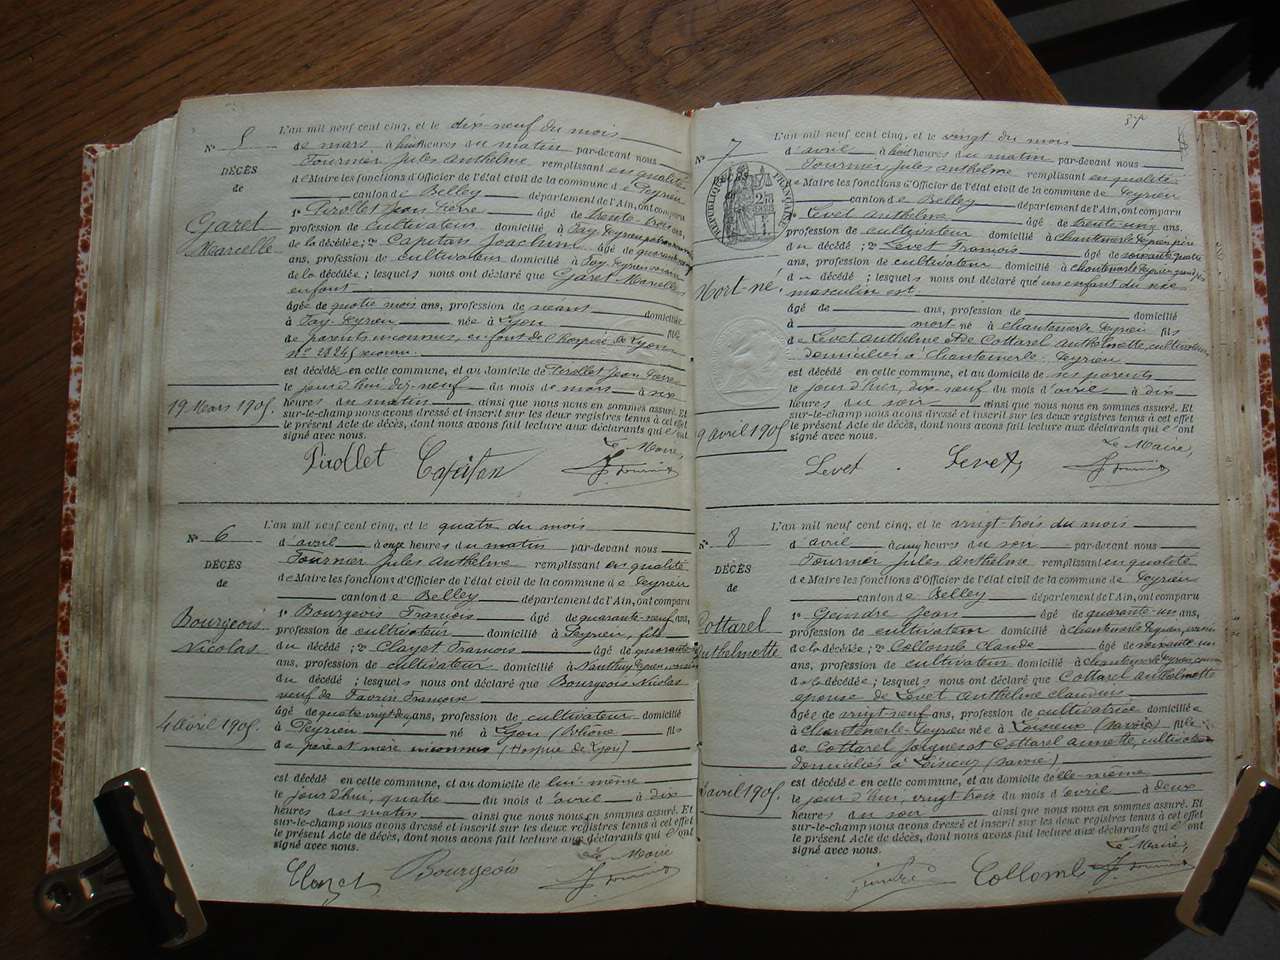 N° 5
DÉCÈS
de
Garet
Marcelle
19 Mars 1905.
L'an mil neuf cent cinq, et le dix-neuf du mois
de mars à huit heures du matin par-devant nous
Fournier Jules Anthelme remplissant en qualité
de Maire les fonctions d'Officier de l'état civil de la commune de Peyrieu
canton de Belley département de l'Ain, ont comparu
1° Pirollet Jean Pierre âgé de trente-trois ans,
profession de cultivateur domicilié à Fay, Peyrieu
de la décédée ; 2° Capitan Joachim âgé de quarante
ans, profession de cultivateur domicilié à Fay, Peyrieu
de la décédée ; lesquels nous ont déclaré que Garet Marcelle
enfant
âgée de quatre mois ans, profession de néant domiciliée
à Fay, Peyrieu née à Lyon fille
de parents inconnus, enfant de l'hospice de Lyon
est décédée en cette commune, et au domicile de Pirollet Jean Pierre
le jourd'hui dix-neuf du mois de mars à six
heures du matin ainsi que nous nous en sommes assuré. Et
sur-le-champ nous avons dressé et inscrit sur les deux registres tenus à cet effet
le présent Acte de décès, dont nous avons fait lecture aux déclarants qui l'ont
signé avec nous.
Le Maire,
Pirollet Capitan
N° 6
DÉCÈS
de
Bourgeois
Nicolas
4 avril 1905.
L'an mil neuf cent cinq, et le quatre du mois
d'avril à onze heures du matin par-devant nous
Fournier Jules Anthelme remplissant en qualité
de Maire les fonctions d'Officier de l'état civil de la commune de Peyrieu
canton de Belley département de l'Ain, ont comparu
1° Bourgeois François âgé de quarante-neuf ans,
profession de cultivateur domicilié à Peyrieu, fils
du décédé ; 2° Clayet François âgé de quarante
ans, profession de cultivateur domicilié à Nanthuy, Peyrieu, voisin
du décédé ; lesquels nous ont déclaré que Bourgeois Nicolas
veuf de Favrin Françoise
âgé de quatre vingt deux ans, profession de cultivateur domicilié
à Peyrieu né à Lyon (Rhône) fils
de père et mère inconnus (Hospice de Lyon)
est décédé en cette commune, et au domicile de lui-même
le jourd'hui, quatre du mois d'avril à dix
heures du matin ainsi que nous nous en sommes assuré. Et
sur-le-champ nous avons dressé et inscrit sur les deux registres tenus à cet effet
le présent Acte de décès, dont nous avons fait lecture aux déclarants qui l'ont
signé avec nous.
Le Maire
Bourgeois
37
N° 7
RÉPUBLIQUE FRANÇAISE
Mort-né.
9 avril 1905
L'an mil neuf cent cinq, et le vingt du mois
d'avril à huit heures du matin par-devant nous
Fournier Jules Anthelme remplissant en qualité
de Maire les fonctions d'Officier de l'état civil de la commune de Peyrieu
canton de Belley département de l'Ain, ont comparu
1° Levet Anthelme âgé de trente-un ans,
profession de cultivateur domicilié à Chantemerle, Peyrieu, père
du décédé ; 2° Levet François âgé de soixante-quatre
ans, profession de cultivateur domicilié à Chantemerle, Peyrieu
du décédé ; lesquels nous ont déclaré que un enfant du sexe
masculin est
âgé de ans, profession de domicilié
à mort né à Chantemerle, Peyrieu fils
de Levet Anthelme et de Cottarel Anthelmette, cultivateurs
domiciliés à Chantemerle, Peyrieu
est décédé en cette commune, et au domicile de ses parents
le jour d'hier, dix-neuf du mois d'avril à dix
heures du soir ainsi que nous nous en sommes assuré. Et
sur-le-champ nous avons dressé et inscrit sur les deux registres tenus à cet effet
le présent Acte de décès, dont nous avons fait lecture aux déclarants qui l'ont
signé avec nous.
Le Maire,
Levet . Levet
N° 8
DÉCÈS
de
Cottarel
Anthelmette
avril 1905.
L'an mil neuf cent cinq, et le vingt-trois du mois
d'avril à cinq heures du soir par-devant nous
Fournier Jules Anthelme remplissant en qualité
de Maire les fonctions d'Officier de l'état civil de la commune de Peyrieu
canton de Belley département de l'Ain, ont comparu
1° Geindre Jean âgé de quarante-un ans,
profession de cultivateur domicilié à Chantemerle, Peyrieu, voisin
de la décédée ; 2° Collomb Claude âgé de soixante-un
ans, profession de cultivateur domicilié à Chantemerle, Peyrieu
de la décédée ; lesquels nous ont déclaré que Cottarel Anthelmette
épouse de Levet Anthelme Claudius
âgée de vingt-neuf ans, profession de cultivatrice domiciliée
à Chantemerle, Peyrieu née à Loisieux (Savoie) fille
de Cottarel Jacques et Cottarel Annette, cultivateurs
domiciliés à Loisieux (Savoie)
est décédée en cette commune, et au domicile de elle-même
le jourd'hui, vingt-trois du mois d'avril à deux
heures du soir ainsi que nous nous en sommes assuré. Et
sur-le-champ nous avons dressé et inscrit sur les deux registres tenus à cet effet
le présent Acte de décès, dont nous avons fait lecture aux déclarants qui l'ont
signé avec nous.
Le Maire,
Collomb